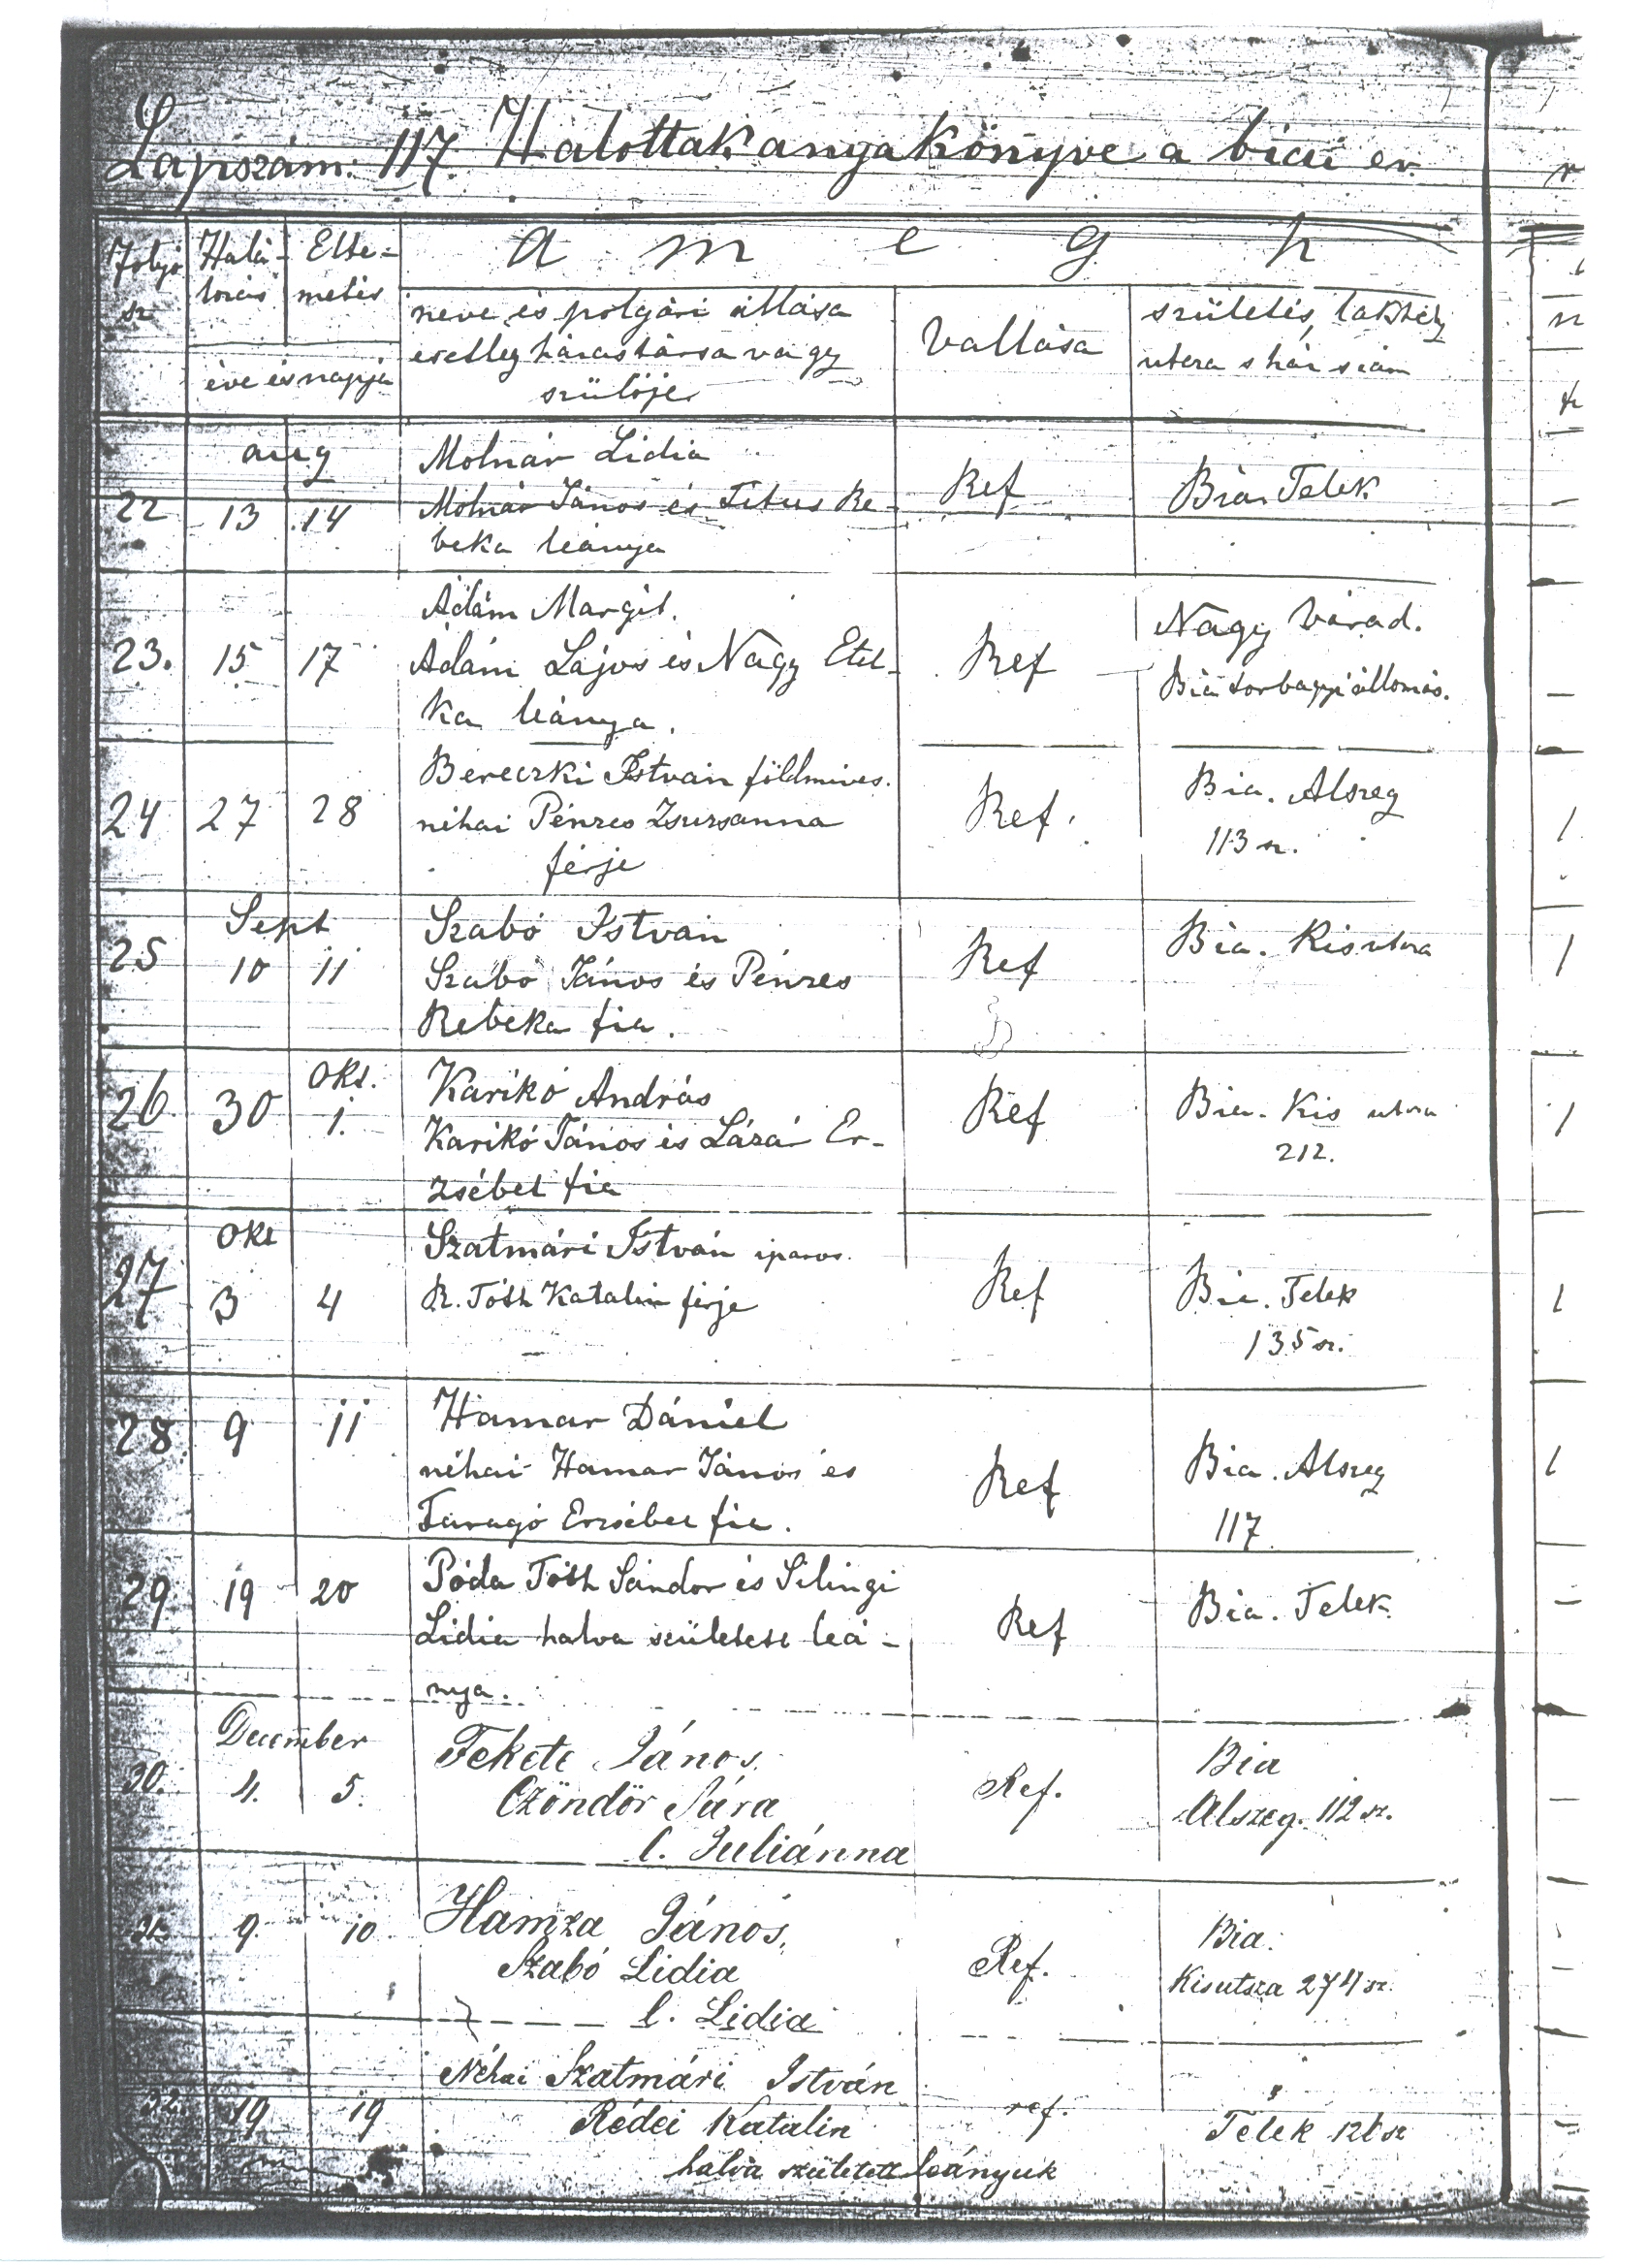 Lapszám: 117. Halottak anyakönyve a biai ev.
Folyó sz
Halálozás
Elte-
metés
éve és napja
a m e g h
neve és polgári állása
esetleg házastársa vagy
szülője
Vallása
születés, lakhely
utcza s ház szám
aug
22 13 14
Molnár Lidia
Molnár János és Titus Re-
beka leánya
Ref
Bia. Telek
23. 15 17
Ádám Margit.
Ádám Lajos és Nagy Etel-
ka leánya.
Ref
Nagy Várad.
Bia torbagyi állomás.
24 27 28
Bereczki István földmives.
néhai Pénzes Zsuzsanna
férje
Ref.
Bia. Alszeg
113 sz.
Sept
25 10 11
Szabó István
Szabó János és Pénzes
Rebeka fia.
Ref
Bia. Kis utcza
26 30 Okt. 1.
Karikó András
Karikó János és Lázár Er-
zsébet fia
Ref
Bia. Kis utcza
212.
Okt
27 3 4
Szatmári István iparos.
R. Tóth Katalin férje
Ref
Bia. Telek
135 sz.
28 9 11
Hamar Dániel
néhai Hamar János és
Faragó Erzsébet fia.
Ref
Bia. Alszeg
117
29 19 20
Póda Tóth Sándor és Silingi
Lidia halva született leá-
nya.
Ref
Bia. Telek
December
30. 4. 5.
Fekete János.
Czöndör Sára
l. Juliánna
Ref.
Bia
Alszeg. 112 sz.
31. 9. 10.
Hamza János,
Szabó Lidia
l. Lidia
Ref.
Bia.
Kisutsza 274 sz.
32. 19 19
Néhai Szatmári István
Rédei Katalin
halva született leányuk
ref.
"
Telek 126 sz